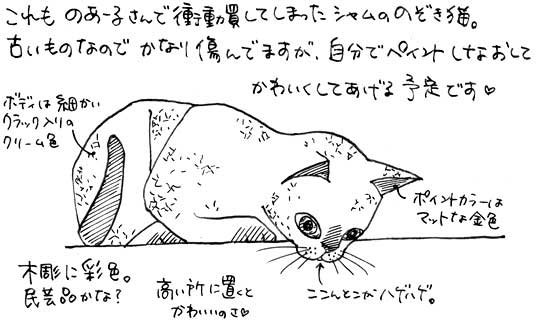 これも のあーるさんで衝動買してしまった シャムの のぞき猫。
古いものなので かなり傷んでますが、自分でペイントしなおして
かわいくしてあげる予定です♡
ボディは細かい
クラック入りの
クリーム色
ポイントカラーは
マットな金色
木彫に彩色。
民芸品かな？
高い所に置くと
かわいいのさ♡
ここんとこが ハゲハゲ。